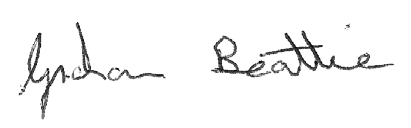 Graham Beattie